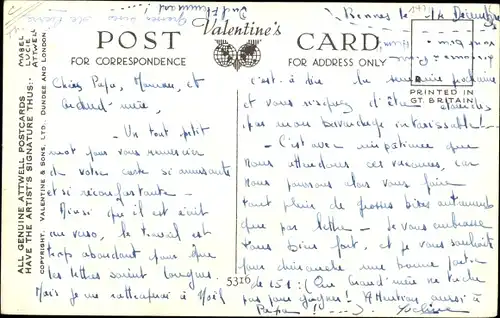 Rennes le 14
Valentine's
POST CARD
FOR CORRESPONDENCE
FOR ADDRESS ONLY
PRINTED IN
GT. BRITAIN
ALL GENUINE ATTWELL POSTCARDS
HAVE THE ARTIST'S SIGNATURE THUS:—
MABEL
LUCIE
ATTWELL
COPYRIGHT. VALENTINE & SONS, LTD. DUNDEE AND LONDON.
Chers Papa, Maman, et
Grand-mère,
- Un tout petit
mot pour vous remercier
de votre carte si amusante
et si réconfortante -
Ainsi qu'il est écrit
au verso, le travail est
trop abondant pour que
les lettres soient longues.
Mais je me rattraperai à Noël
5310
c'est à dire la semaine prochaine
et vous risquez d'être
par mon bavardage intarissable! -
- C'est avec impatience que
nous attendons ces vacances, car
nous pourrons alors vous faire
tout plein de grosses bises autrement
que par lettre - Je vous embrasse
tous bien fort, et je vous souhaite
pour dimanche une bonne partie
de 151! (Que Grand'mère ne triche
pas pour gagner! Attention aussi à
Papa! )...